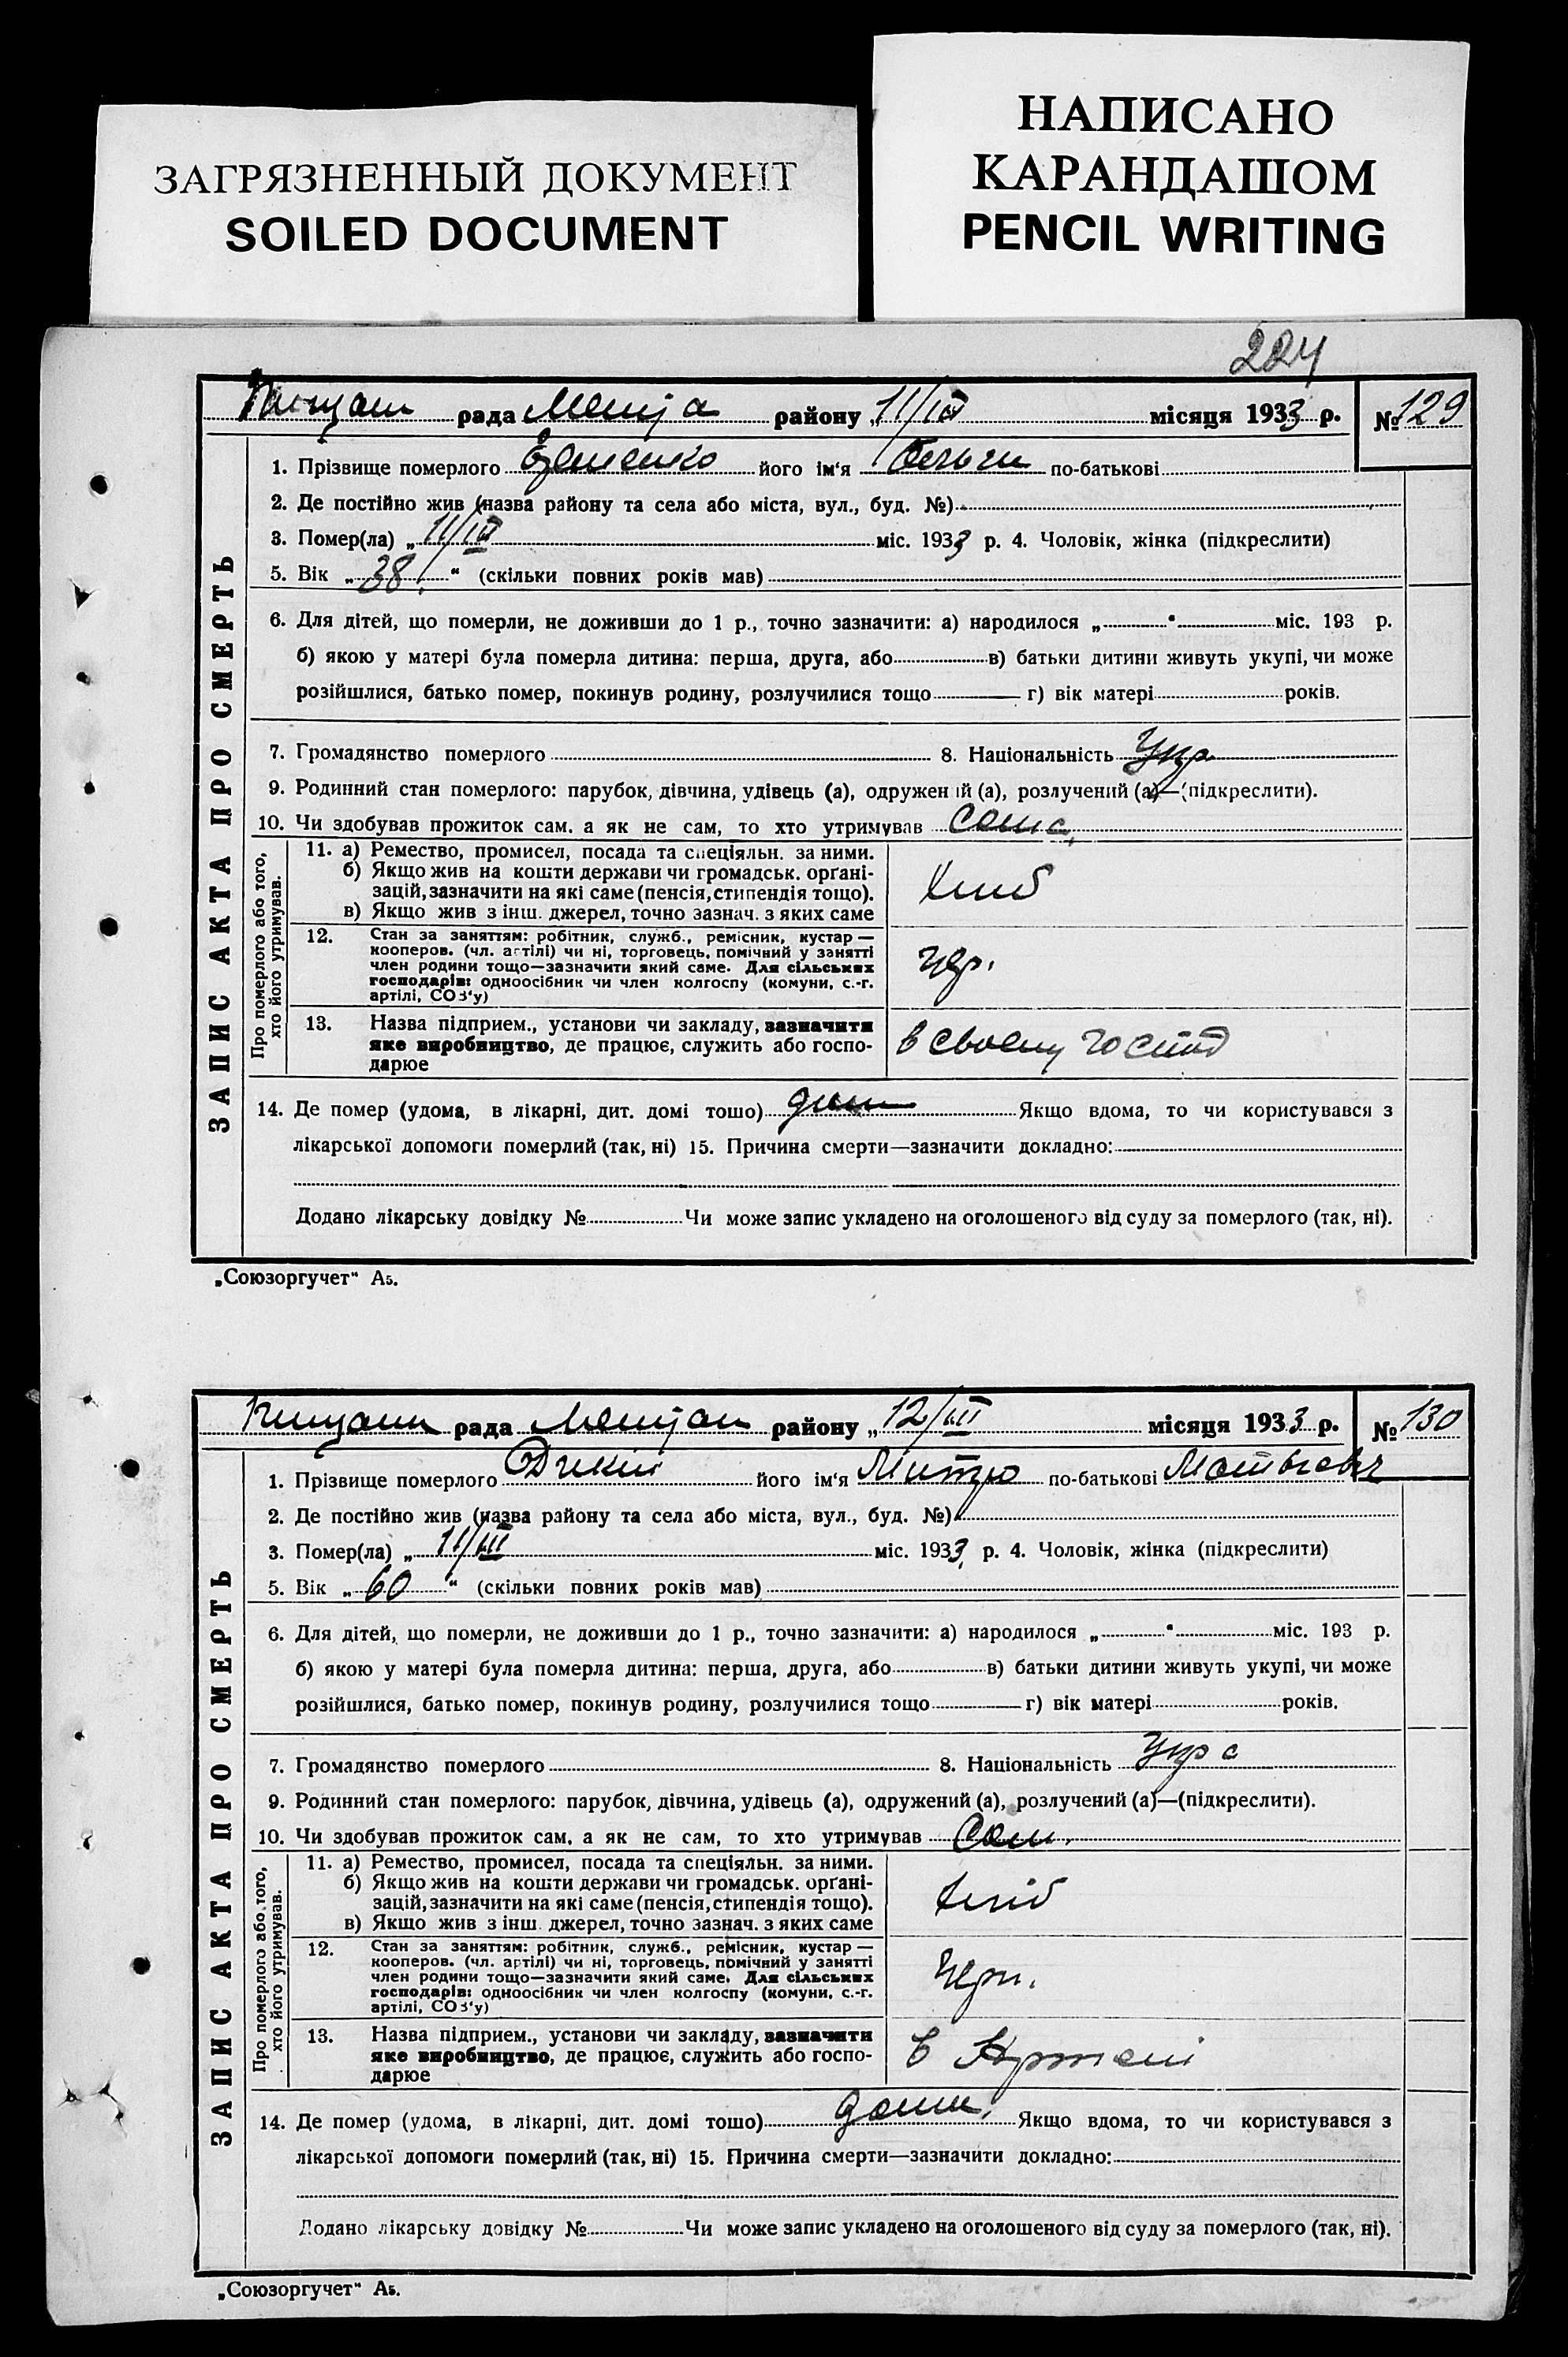 НАПИСАНО
КАРАНДАШОМ
PENCIL WRITING
ЗАГРЯЗНЕННЫЙ ДОКУМЕНТ
SOILED DOCUMENT
224
рада району „11/III місяця 1933 р. № 129
1. Прізвище померлого його ім‘я по-батькові
2. Де постійно жив (назва району та села або міста, вул., буд. №)
3. Помер(ла) „11/III міс. 1933 р. 4. Чоловік, жінка (підкреслити)
5. Вік „38.“ (скільки повних років мав)
6. Для дітей, що померли, не доживши до 1 р., точно зазначити: а) народилося „ “ міс. 193 р.
б) якою у матері була померла дитина: перша, друга, або в) батьки дитини живуть укупі, чи може
розійшлися, батько помер, покинув родину, розлучилися тощо г) вік матері років.
7. Громадянство померлого 8. Національність Укр.
9. Родинний стан померлого: парубок, дівчина, удівець (а), одружений (а), розлучений (а)—(підкреслити).
10. Чи здобував прожиток сам, а як не сам, то хто утримував Сама,
Про померлого або того,
хто його утримував.
11. а) Ремество, промисел, посада та спеціяльн. за ними.
б) Якщо жив на кошти держави чи громадськ. орґані-
зацій, зазначити на які саме (пенсія, стипендія тощо).
в) Якщо жив з інш. джерел, точно зазнач. з яких саме
хліб
12. Стан за заняттям: робітник, служб., ремісник, кустар —
кооперов. (чл. артілі) чи ні, торговець, помічний у занятті
член родини тощо—зазначити який саме. Для сільських
господарів: одноосібник чи член колгоспу (комуни, с.-г.
артілі, СОЗ‘у)
13. Назва підприем., установи чи закладу, зазначити
яке виробництво, де працює, служить або госпо-
дарює
в своєму господ
14. Де помер (удома, в лікарні, дит. домі тошо) дома Якщо вдома, то чи користувався з
лікарської допомоги померлий (так, ні) 15. Причина смерти—зазначити докладно:
Додано лікарську довідку № Чи може запис укладено на оголошеного від суду за померлого (так, ні).
ЗАПИС АКТА ПРО СМЕРТЬ
„Союзоргучет“ А5.
рада району „12/III місяця 1933 р. № 130
1. Прізвище померлого Дикий його ім‘я Митро по-батькові Матвієвич
2. Де постійно жив (назва району та села або міста, вул., буд. №)
3. Помер(ла) „11/III міс. 1933 р. 4. Чоловік, жінка (підкреслити)
5. Вік „60“ (скільки повних років мав)
6. Для дітей, що померли, не доживши до 1 р., точно зазначити: а) народилося „ “ міс. 193 р.
б) якою у матері була померла дитина: перша, друга, або в) батьки дитини живуть укупі, чи може
розійшлися, батько помер, покинув родину, розлучилися тощо г) вік матері років.
7. Громадянство померлого 8. Національність Укр
9. Родинний стан померлого: парубок, дівчина, удівець (а), одружений (а), розлучений (а)—(підкреслити).
10. Чи здобував прожиток сам, а як не сам, то хто утримував Сам.
Про померлого або того,
хто його утримував.
11. а) Ремество, промисел, посада та спеціяльн. за ними.
б) Якщо жив на кошти держави чи громадськ. орґані-
зацій, зазначити на які саме (пенсія, стипендія тощо).
в) Якщо жив з інш. джерел, точно зазнач. з яких саме
хліб
12. Стан за заняттям: робітник, служб., ремісник, кустар —
кооперов. (чл. артілі) чи ні, торговець, помічний у занятті
член родини тощо—зазначити який саме. Для сільських
господарів: одноосібник чи член колгоспу (комуни, с.-г.
артілі, СОЗ‘у)
13. Назва підприем., установи чи закладу, зазначити
яке виробництво, де працює, служить або госпо-
дарює
в Артелі
14. Де помер (удома, в лікарні, дит. домі тошо) дома. Якщо вдома, то чи користувався з
лікарської допомоги померлий (так, ні) 15. Причина смерти—зазначити докладно:
Додано лікарську довідку № Чи може запис укладено на оголошеного від суду за померлого (так, ні).
ЗАПИС АКТА ПРО СМЕРТЬ
„Союзоргучет“ А5.